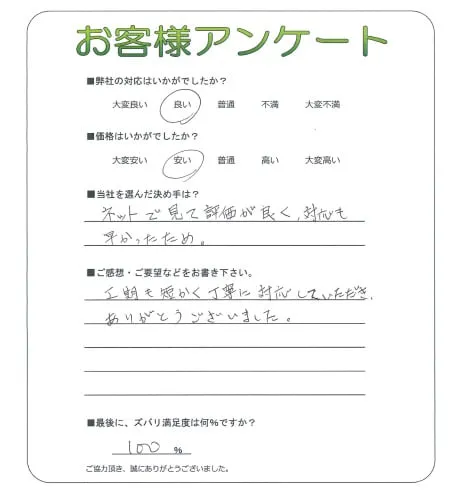 お客様アンケート
■弊社の対応はいかがでしたか？
大変良い 良い 普通 不満 大変不満
■価格はいかがでしたか？
大変安い 安い 普通 高い 大変高い
■当社を選んだ決め手は？
ネットで見て評価が良く、対応も
早かったため。
■ご感想・ご要望などをお書き下さい。
工期も短かく丁寧に対応していただき、
ありがとうございました。
■最後に、ズバリ満足度は何%ですか？
100 %
ご協力頂き、誠にありがとうございました。